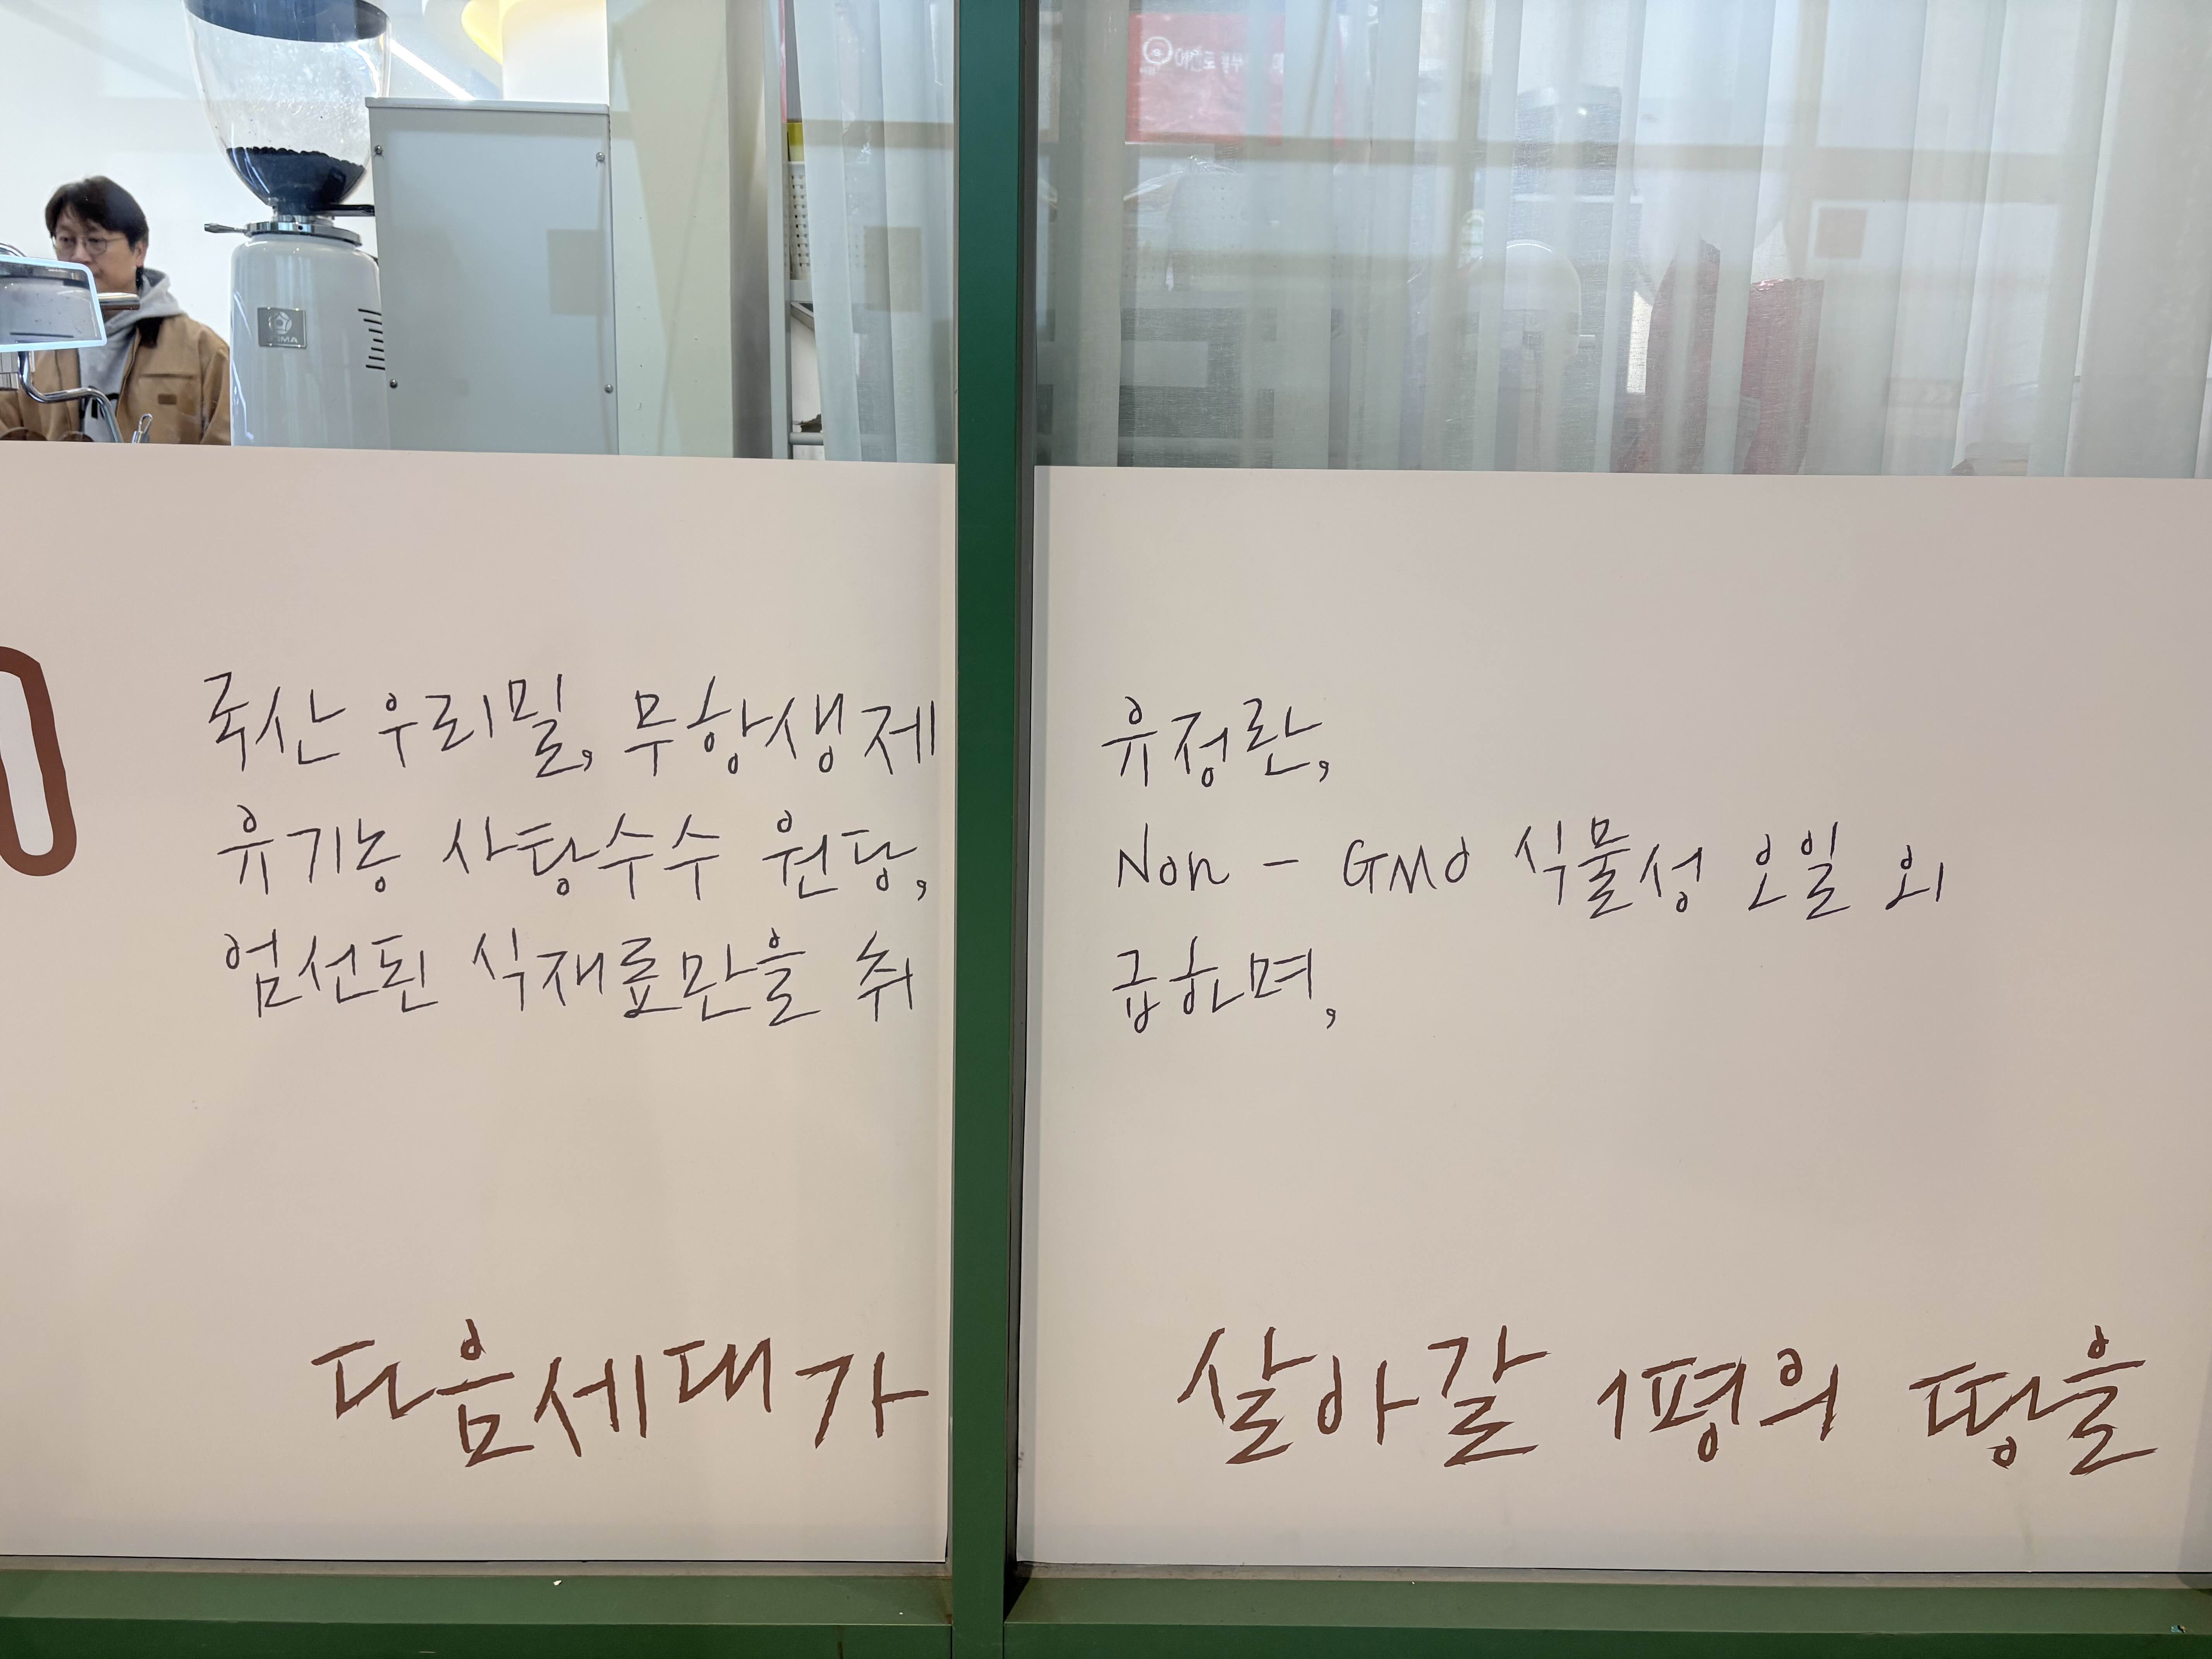 국산 우리밀, 무항생제 유정란,
유기농 사탕수수 원당, Non - GMO 식물성 오일 외
엄선된 식재료만을 취급하며,
다음세대가 살아갈 1평의 땅을